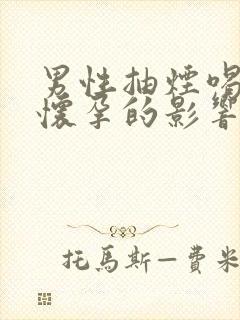 男性抽煙喝
懷孕的影響
托馬斯—費米